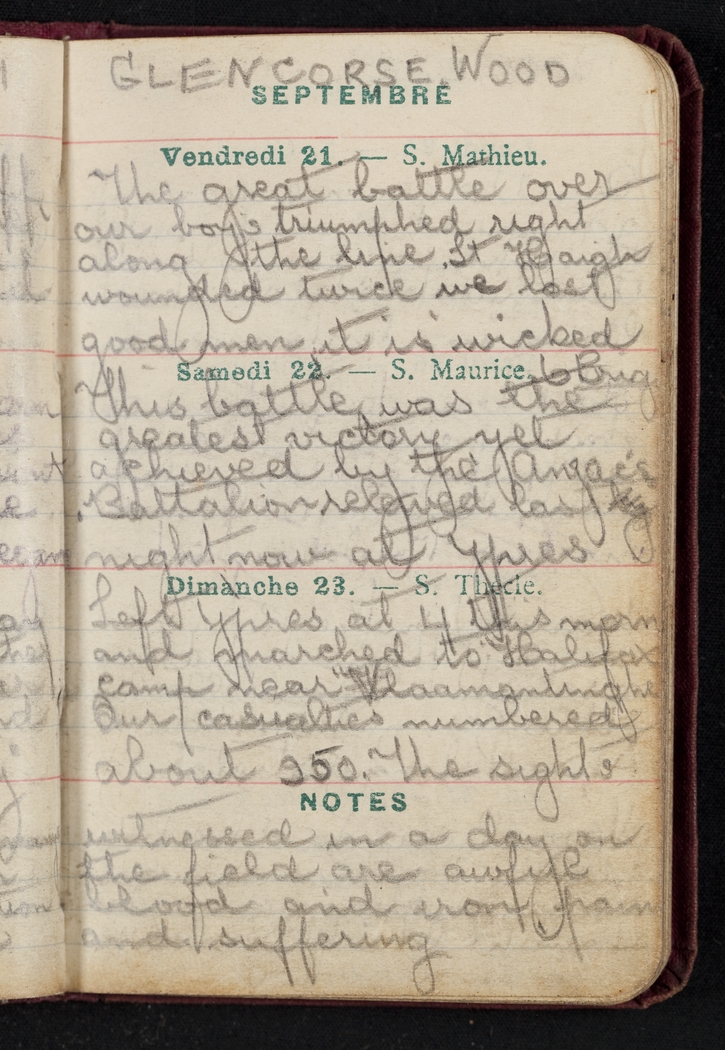 GLENCORSE WOOD
SEPTEMBRE
Vendredi 21. — S. Mathieu.
The great battle over
our boys triumphed right
along the line Lt Haigh
wounded twice we lost
good men it is wicked
Samedi 22. — S. Maurice.
This battle was the
greatest victory yet
achieved by the Anzacs
Battalion releived last
night now at Ypres
Dimanche 23. — S. Thècle.
Left Ypres at 4 this morn
and marched to Halifax
camp near Vlaamantinghe
Our casualties numbered
about 250. The sights
NOTES
witnessed in a day on
the field are awful
blood and iron pain
and suffering